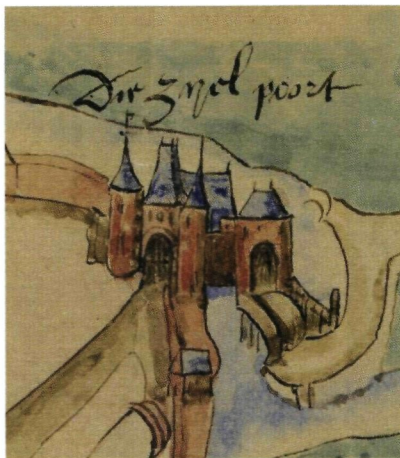 Die zijel poort